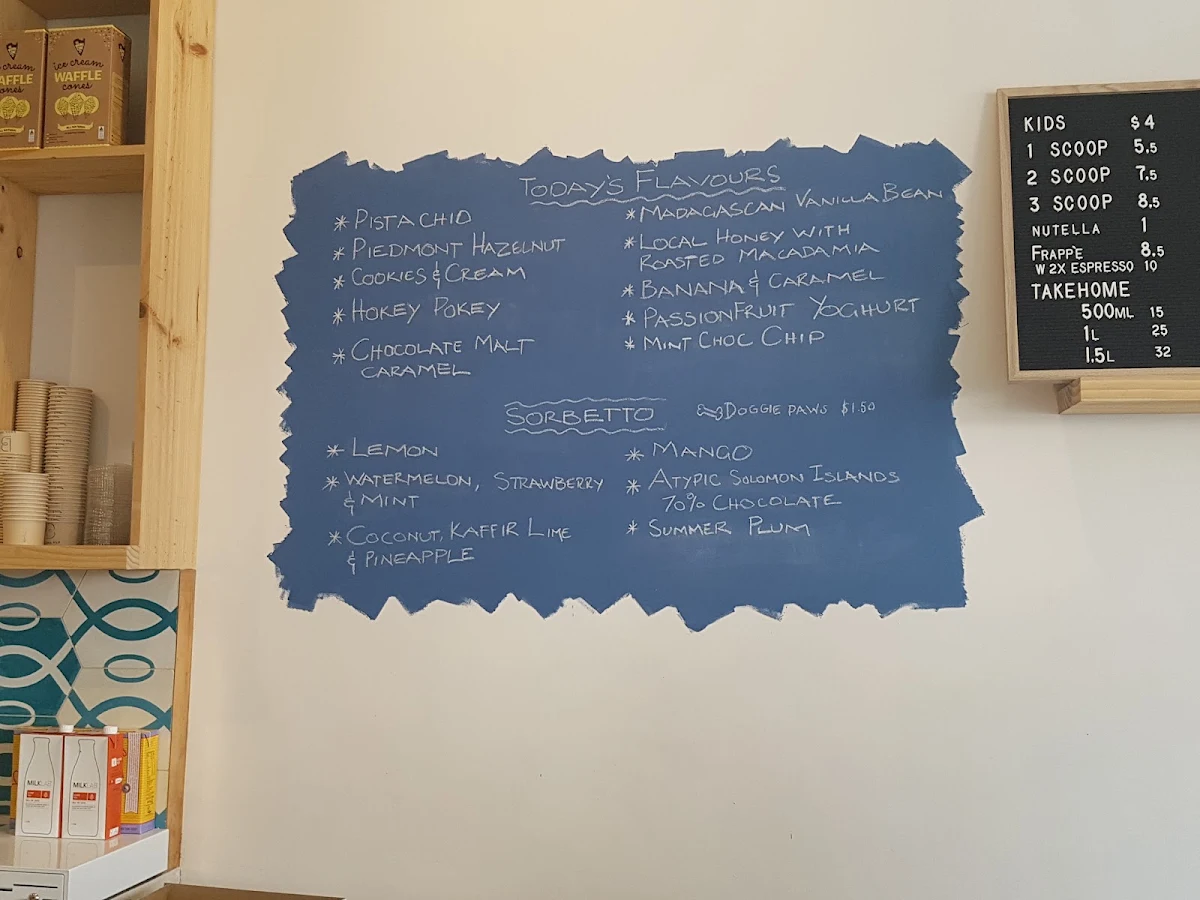 ice cream
WAFFLE
cones
TODAY'S FLAVOURS
* PISTACHIO
* PIEDMONT HAZELNUT
* COOKIES & CREAM
* HOKEY POKEY
* CHOCOLATE MALT
CARAMEL
* MADAGASCAN VANILLA BEAN
* LOCAL HONEY WITH
ROASTED MACADAMIA
* BANANA & CARAMEL
* PASSIONFRUIT YOGHURT
* MINT CHOC CHIP
SORBETTO
DOGGIE PAWS $1.50
* LEMON
* WATERMELON, STRAWBERRY
& MINT
* COCONUT, KAFFIR LIME
& PINEAPPLE
* MANGO
* ATYPIC SOLOMON ISLANDS
70% CHOCOLATE
* SUMMER PLUM
KIDS $4
1 SCOOP 5.5
2 SCOOP 7.5
3 SCOOP 8.5
NUTELLA 1
FRAPPE 8.5
W 2X ESPRESSO 10
TAKEHOME
500ML 15
1L 25
1.5L 32
MILKLAB
MILKLAB